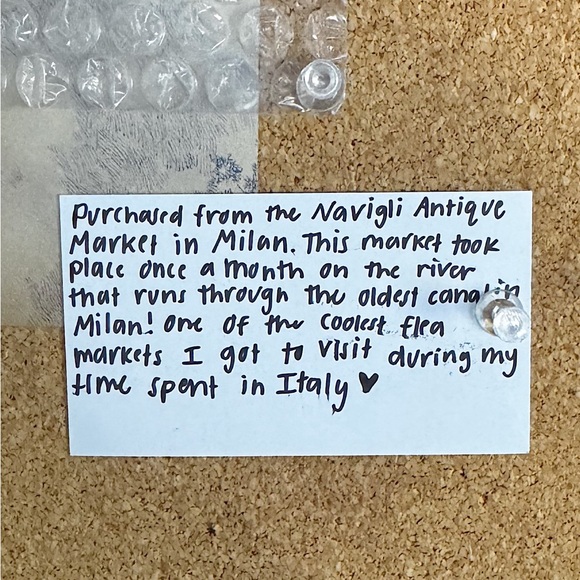 Purchased from the Navigli Antique
Market in Milan. This market took
place once a month on the river
that runs through the oldest canal in
Milan! One of the coolest flea
markets I got to visit during my
time spent in Italy ♥